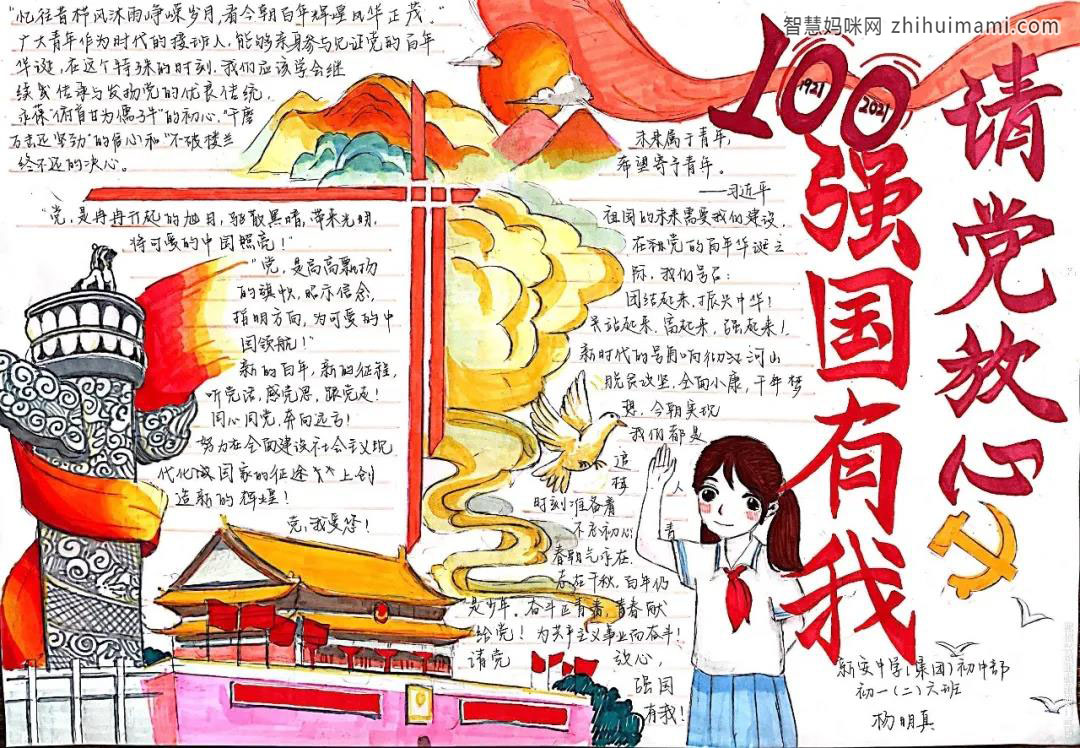 智慧妈咪网 zhihuimami.com
请党放心
强国有我
100
1921
2021
"忆往昔栉风沐雨峥嵘岁月,看今朝百年辉煌风华正茂。"
广大青年作为时代的接班人,能够亲身参与见证党的百年
华诞,在这个特殊的时刻,我们应该学会继
续发传承与发扬党的优良传统,
永葆"俯首甘为孺子牛"的初心,"千磨
万击还坚劲"的信心和"不破楼兰
终不还的决心。
"党,是冉冉升起的旭日,驱散黑暗,带来光明,
将可爱的中国照亮!"
"党,是高高飘扬
的旗帜,昭示信念,
指明方向,为可爱的中
国领航!"
新的百年,新的征程,
听党话,感党恩,跟党走!
同心同党,奔向远方!
努力在全面建设社会主义现
代化国家的征途上创
造新的辉煌!
党,我爱您!
未来属于青年,
希望寄予青年。
——习近平
祖国的未来需要我们建设,
在建党的百年华诞之
际,我们号召:
团结起来,振兴中华!
站起来、富起来、强起来!
新时代的号角响彻江河山
脱贫攻坚,全面小康,千年梦
想,今朝实现
我们都是
追
梦
人
时刻准备着
不忘初心!
青
春朝气永在,
存在千秋,百年仍
是少年,奋斗正青春,青春献
给党!为共产主义事业而奋斗!
请党 放心,
强国
有我!
新安中学(集团)初中部
初一(二)六班
杨明真